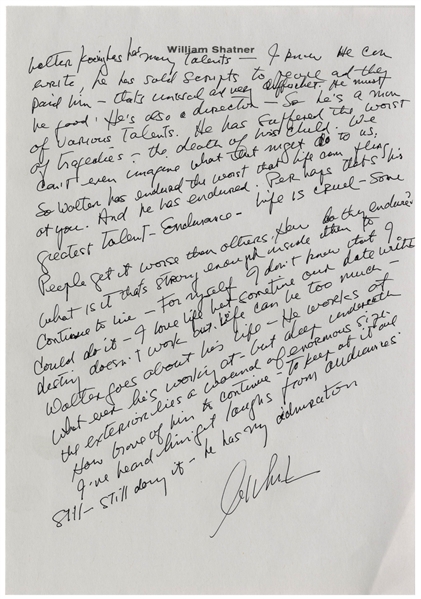 William Shatner
Walter Koenig has many talents – I know He can
write, he has sold scripts to people and they
paid him – that's unusual and very He must
be good! He's also a director – So he's a man
of various talents. He has suffered the worst
of tragedies – the death of his child. We
can't even imagine what that might do to us,
So Walter has endured the worst that life can fling
at you. And he has endured. Perhaps that's his
greatest talent – Endurance – Life is cruel – Some
People get it worse than others. How do they endure?
What is it that's strong enough inside them to
continue to live – For myself I don't know that I
could do it – I love life but sometime our date with
destiny doesn't work out. Life can be too much –
Walter goes about his life – He works at
what ever he's working at – but deep underneath
the exterior lies a wound of enormous size.
How brave of him to continue – to keep at it and
I've heard him get laughs from audiences
Still – still doing it – he has my admiration